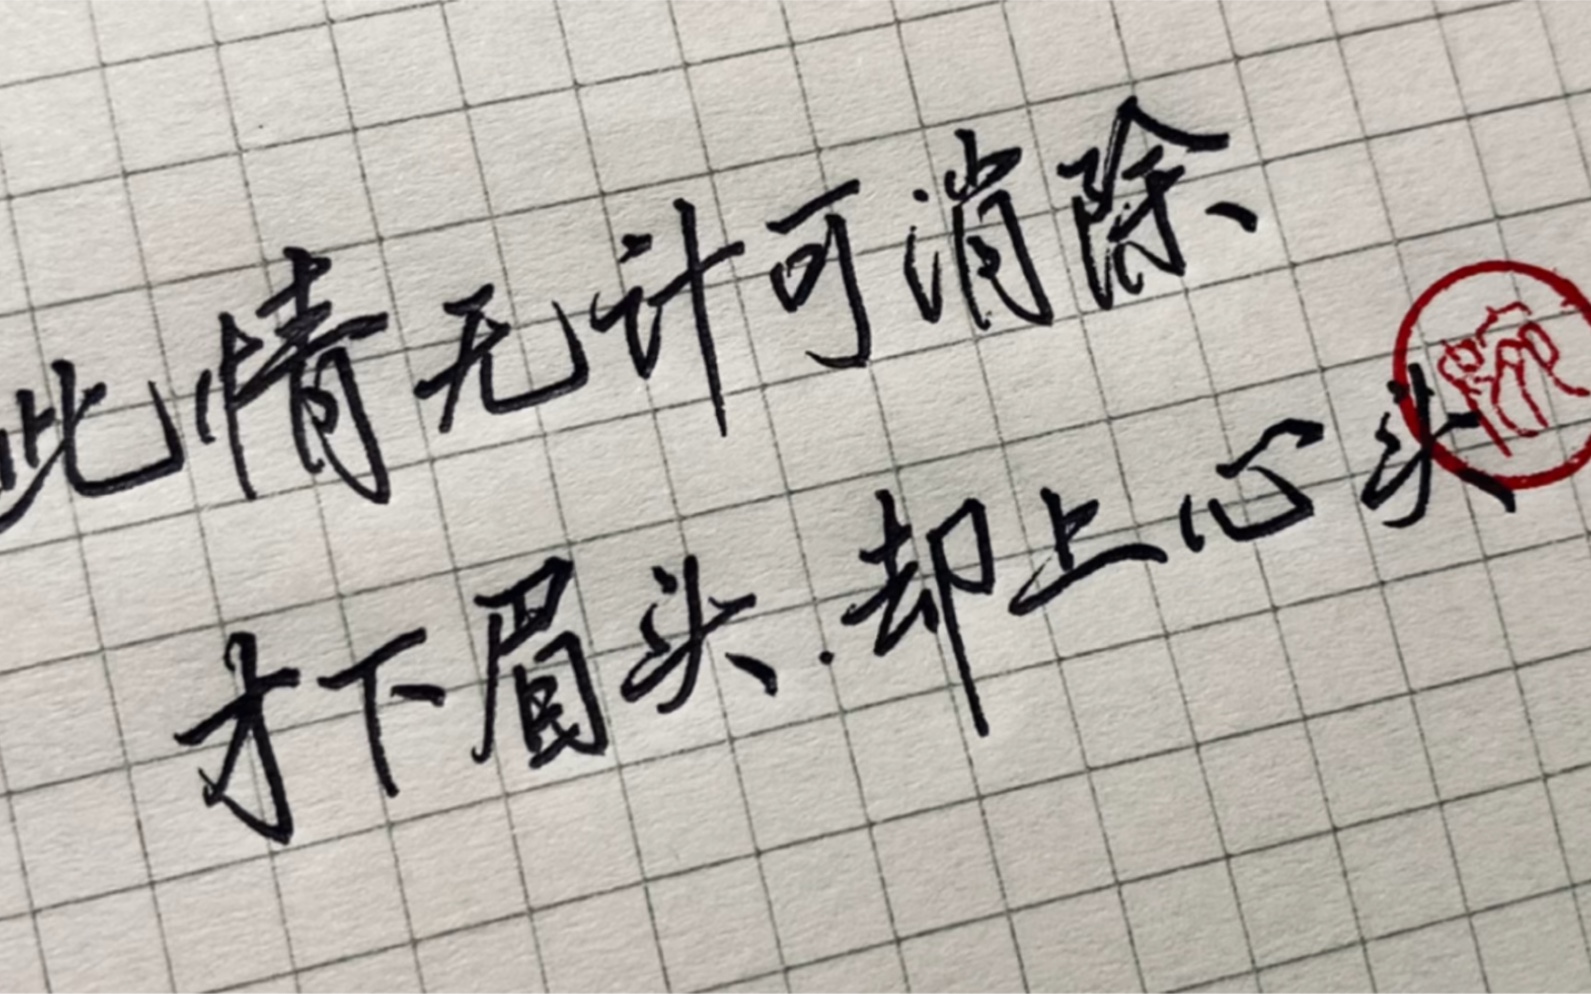 此情无计可消除、
才下眉头.却上心头